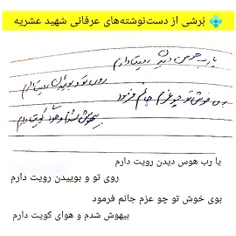 بَرشی از دست‌نوشته‌های عرفانی شهید عشریه
یا رب هوس دیدن رویت دارم
روی تو و بوییدن رویت دارم
بوی خوش تو چو عزم جانم فرمود
بیهوش شدم و هوای کویت دارم
یا رب هوس دیدن رویت دارم
روی تو و بوییدن رویت دارم
بوی خوش تو چو عزم جانم فرمود
بیهوش شدم و هوای کویت دارم